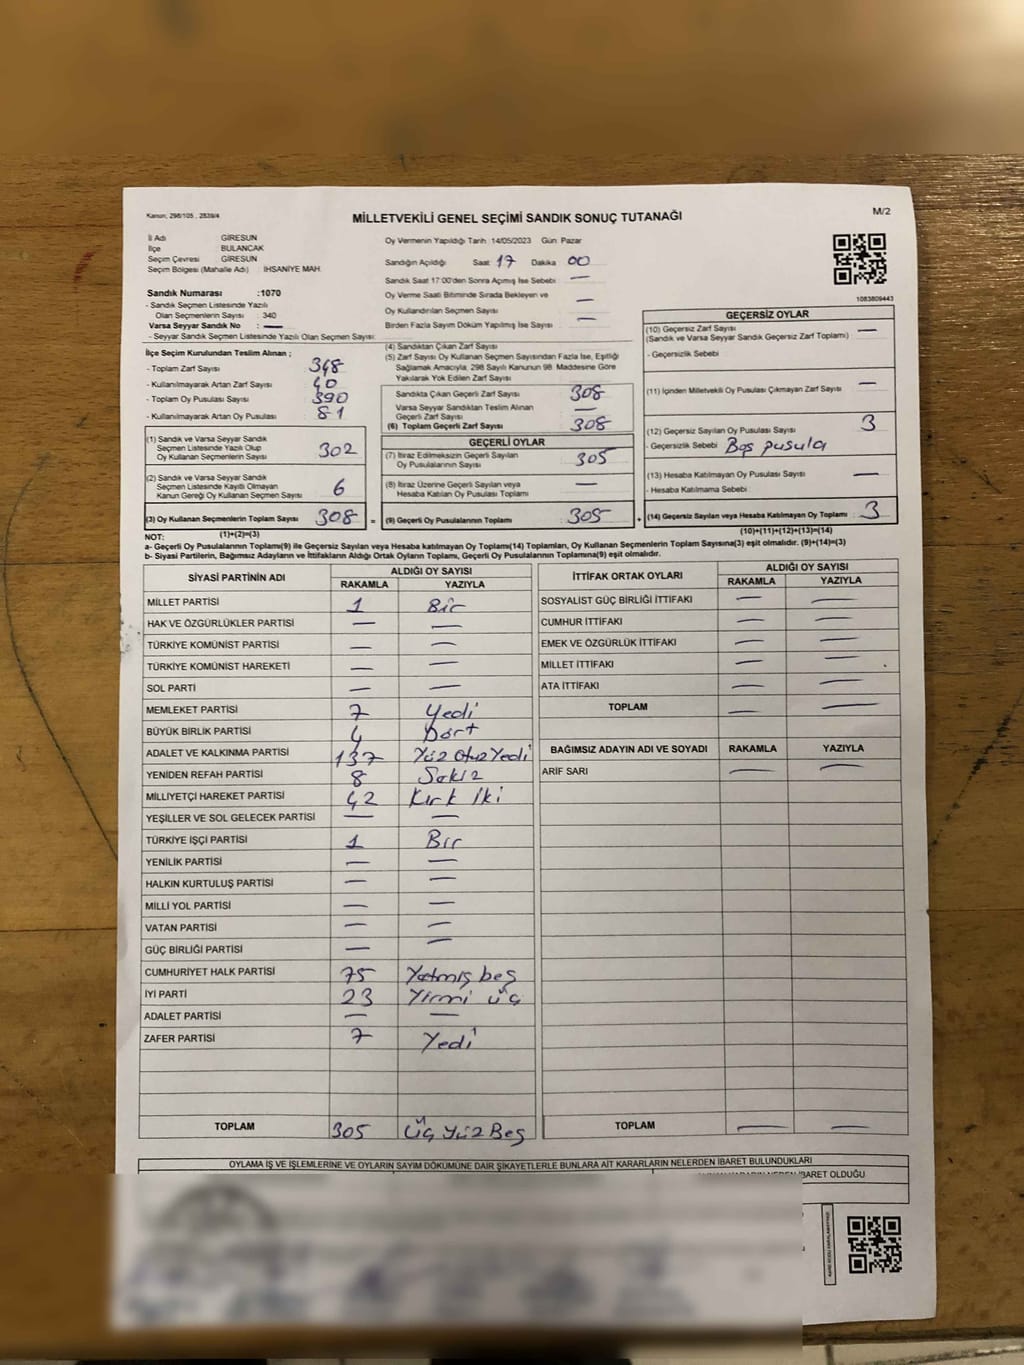 Kanun; 298/105 , 2839/4
MİLLETVEKİLİ GENEL SEÇİMİ SANDIK SONUÇ TUTANAĞI
M/2
İl Adı GİRESUN
İlçe BULANCAK
Seçim Çevresi GİRESUN
Seçim Bölgesi (Mahalle Adı) : İHSANİYE MAH.
Sandık Numarası :1070
- Sandık Seçmen Listesinde Yazılı
Olan Seçmenlerin Sayısı : 340
Varsa Seyyar Sandık No : —
- Seyyar Sandık Seçmen Listesinde Yazılı Olan Seçmen Sayısı:
İlçe Seçim Kurulundan Teslim Alınan ;
- Toplam Zarf Sayısı 348
- Kullanılmayarak Artan Zarf Sayısı 40
- Toplam Oy Pusulası Sayısı 390
- Kullanılmayarak Artan Oy Pusulası 81
(1) Sandık ve Varsa Seyyar Sandık
Seçmen Listesinde Yazılı Olup
Oy Kullanan Seçmenlerin Sayısı 302
(2) Sandık ve Varsa Seyyar Sandık
Seçmen Listesinde Kayıtlı Olmayan
Kanun Gereği Oy Kullanan Seçmen Sayısı 6
(3) Oy Kullanan Seçmenlerin Toplam Sayısı 308 =
(1)+(2)=(3)
Oy Vermenin Yapıldığı Tarih :14/05/2023 Gün: Pazar
Sandığın Açıldığı Saat: 17 Dakika 00
Sandık Saat 17:00'den Sonra Açılmış İse Sebebi : —
Oy Verme Saati Bitiminde Sırada Bekleyen ve
Oy Kullandırılan Seçmen Sayısı : —
Birden Fazla Sayım Döküm Yapılmış İse Sayısı : —
(4) Sandıktan Çıkan Zarf Sayısı
(5) Zarf Sayısı Oy Kullanan Seçmen Sayısından Fazla İse, Eşitliği
Sağlamak Amacıyla, 298 Sayılı Kanunun 98. Maddesine Göre
Yakılarak Yok Edilen Zarf Sayısı
Sandıkta Çıkan Geçerli Zarf Sayısı 308
Varsa Seyyar Sandıktan Teslim Alınan
Geçerli Zarf Sayısı —
(6) Toplam Geçerli Zarf Sayısı 308
GEÇERLİ OYLAR
(7) İtiraz Edilmeksizin Geçerli Sayılan
Oy Pusulalarının Sayısı 305
(8) İtiraz Üzerine Geçerli Sayılan veya
Hesaba Katılan Oy Pusulası Toplamı —
(9) Geçerli Oy Pusulalarının Toplamı 305 +
1083809443
GEÇERSİZ OYLAR
(10) Geçersiz Zarf Sayısı —
(Sandık ve Varsa Seyyar Sandık Geçersiz Zarf Toplamı)
- Geçersizlik Sebebi
(11) İçinden Milletvekili Oy Pusulası Çıkmayan Zarf Sayısı —
(12) Geçersiz Sayılan Oy Pusulası Sayısı 3
- Geçersizlik Sebebi Boş pusula
(13) Hesaba Katılmayan Oy Pusulası Sayısı —
- Hesaba Katılmama Sebebi
(14) Geçersiz Sayılan veya Hesaba Katılmayan Oy Toplamı 3
(10)+(11)+(12)+(13)=(14)
NOT:
a- Geçerli Oy Pusulalarının Toplamı(9) ile Geçersiz Sayılan veya Hesaba katılmayan Oy Toplamı(14) Toplamları, Oy Kullanan Seçmenlerin Toplam Sayısına(3) eşit olmalıdır. (9)+(14)=(3)
b- Siyasi Partilerin, Bağımsız Adayların ve İttifakların Aldığı Ortak Oyların Toplamı, Geçerli Oy Pusulalarının Toplamına(9) eşit olmalıdır.
SİYASİ PARTİNİN ADI ALDIĞI OY SAYISI
RAKAMLA YAZIYLA
MİLLET PARTİSİ 1 Bir
HAK VE ÖZGÜRLÜKLER PARTİSİ — —
TÜRKİYE KOMÜNİST PARTİSİ — —
TÜRKİYE KOMÜNİST HAREKETİ — —
SOL PARTİ — —
MEMLEKET PARTİSİ 7 Yedi
BÜYÜK BİRLİK PARTİSİ 4 Dört
ADALET VE KALKINMA PARTİSİ 137 Yüz Otuz Yedi
YENİDEN REFAH PARTİSİ 8 Sekiz
MİLLİYETÇİ HAREKET PARTİSİ 42 Kırk İki
YEŞİLLER VE SOL GELECEK PARTİSİ — —
TÜRKİYE İŞÇİ PARTİSİ 1 Bir
YENİLİK PARTİSİ — —
HALKIN KURTULUŞ PARTİSİ — —
MİLLİ YOL PARTİSİ — —
VATAN PARTİSİ — —
GÜÇ BİRLİĞİ PARTİSİ — —
CUMHURİYET HALK PARTİSİ 75 Yetmiş beş
İYİ PARTİ 23 Yirmi üç
ADALET PARTİSİ — —
ZAFER PARTİSİ 7 Yedi
TOPLAM 305 Üç Yüz Beş
İTTİFAK ORTAK OYLARI ALDIĞI OY SAYISI
RAKAMLA YAZIYLA
SOSYALİST GÜÇ BİRLİĞİ İTTİFAKI — —
CUMHUR İTTİFAKI — —
EMEK VE ÖZGÜRLÜK İTTİFAKI — —
MİLLET İTTİFAKI — —
ATA İTTİFAKI — —
TOPLAM — —
BAĞIMSIZ ADAYIN ADI VE SOYADI RAKAMLA YAZIYLA
ARİF SARI — —
TOPLAM — —
OYLAMA İŞ VE İŞLEMLERİNE VE OYLARIN SAYIM DÖKÜMÜNE DAİR ŞİKAYETLERLE BUNLARA AİT KARARLARIN NELERDEN İBARET BULUNDUKLARI
İBARET OLDUĞU